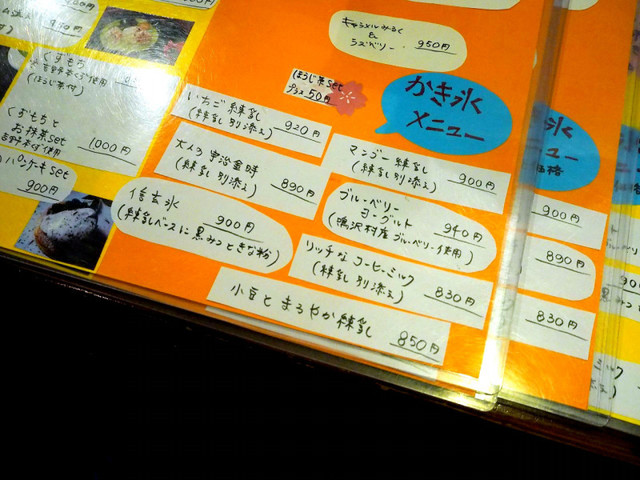 キャラメルみるく
&
ラズベリー 950円
(ほうじ茶set
プラス50円
かき氷
メニュー
いちご練乳 920円
(練乳別添え)
大人の宇治金時
(練乳別添え) 890円
信玄氷
900円
(練乳ベースに黒みつときな粉)
マンゴー練乳
(練乳別添え) 900円
ブルーベリー
ヨーグルト 940円
(鳴沢村産ブルーベリー使用)
リッチなコーヒーミルク
(練乳別添え) 830円
小豆とまろやか練乳 850円
くずもち
吉野本くず使用
(ほうじ茶付)
くずもちと
お抹茶set
吉野本くず使用 1000円
パンケーキset
900円
かき氷
ニュー
900円
890円
830円